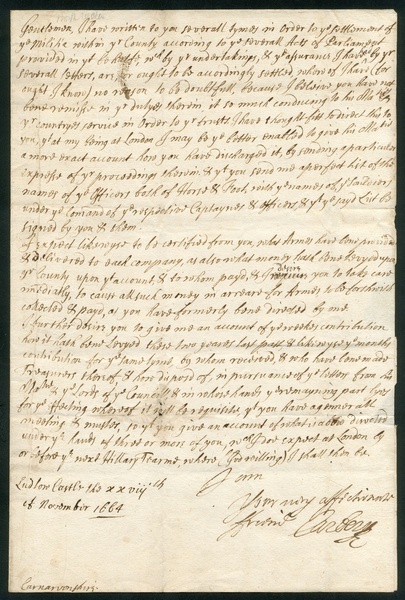 Gentlemen, I have written to you severall tymes in Order to ye settlement of
ye Militia within yr County according to ye severall Acts of Parliament
provided in yt behalfe, wch by yr undertakings, & ye assurance I have by yr
severall letters, are or ought to be accordingly settled whereof I have (for
ought I know) no reason to be doubtfull, because I beleive you have not
bene remisse in yr dutyes therein it so much conduceing to his Maties &
yr countryes service In Order to yr trusts I have thought fitt to direct this to
you, yt at my being at London I may be ye better enabled to give his Matie
a more exact account how you have discharged it, by sending a particular
expresse of yr proceedings therein, & yt you send me a perfect list of the
names of ye Officers both of Horse & Foot, with ye names of ye Souldiers
under ye Comand of ye respective Captaynes & Officers, & yt ye sayd List be
signed by you & them.
I expect likewyse to be certified from you, what Armes have bene provided
& delivered to each company, as also what money hath bene Leveyed upon
yr County upon yt account, & to whom payd, & desire you to take care
imediatly, to cause all such money in arreare for Armes to be forthwith
collected & payd, as you have formerly bene directed by me.
I further desire you to give me an account of ye weekes contribution
how it hath bene Levyed these two yeares last past & likewyse ye months
contribution for ye same tyme, by whom received, & who have bene made
Treasurers therof, & how disposed of, in pursuance of ye letters from the
ye Lords of ye Councill, & in whose hands ye remayning part lyes
for ye effecting whereof it will be requisite yt you have a generall
meeting & muster, so yt you give an account of what is above directed
under ye hands of three or more of you, wch I doe expect at London by
or before ye next Hillary Tearme, where (God willing) I shall then be.
I am
Your very affectionate
friend Carbery
Ludlow Castle the xxviijth
of November 1664
Carnarvonshire